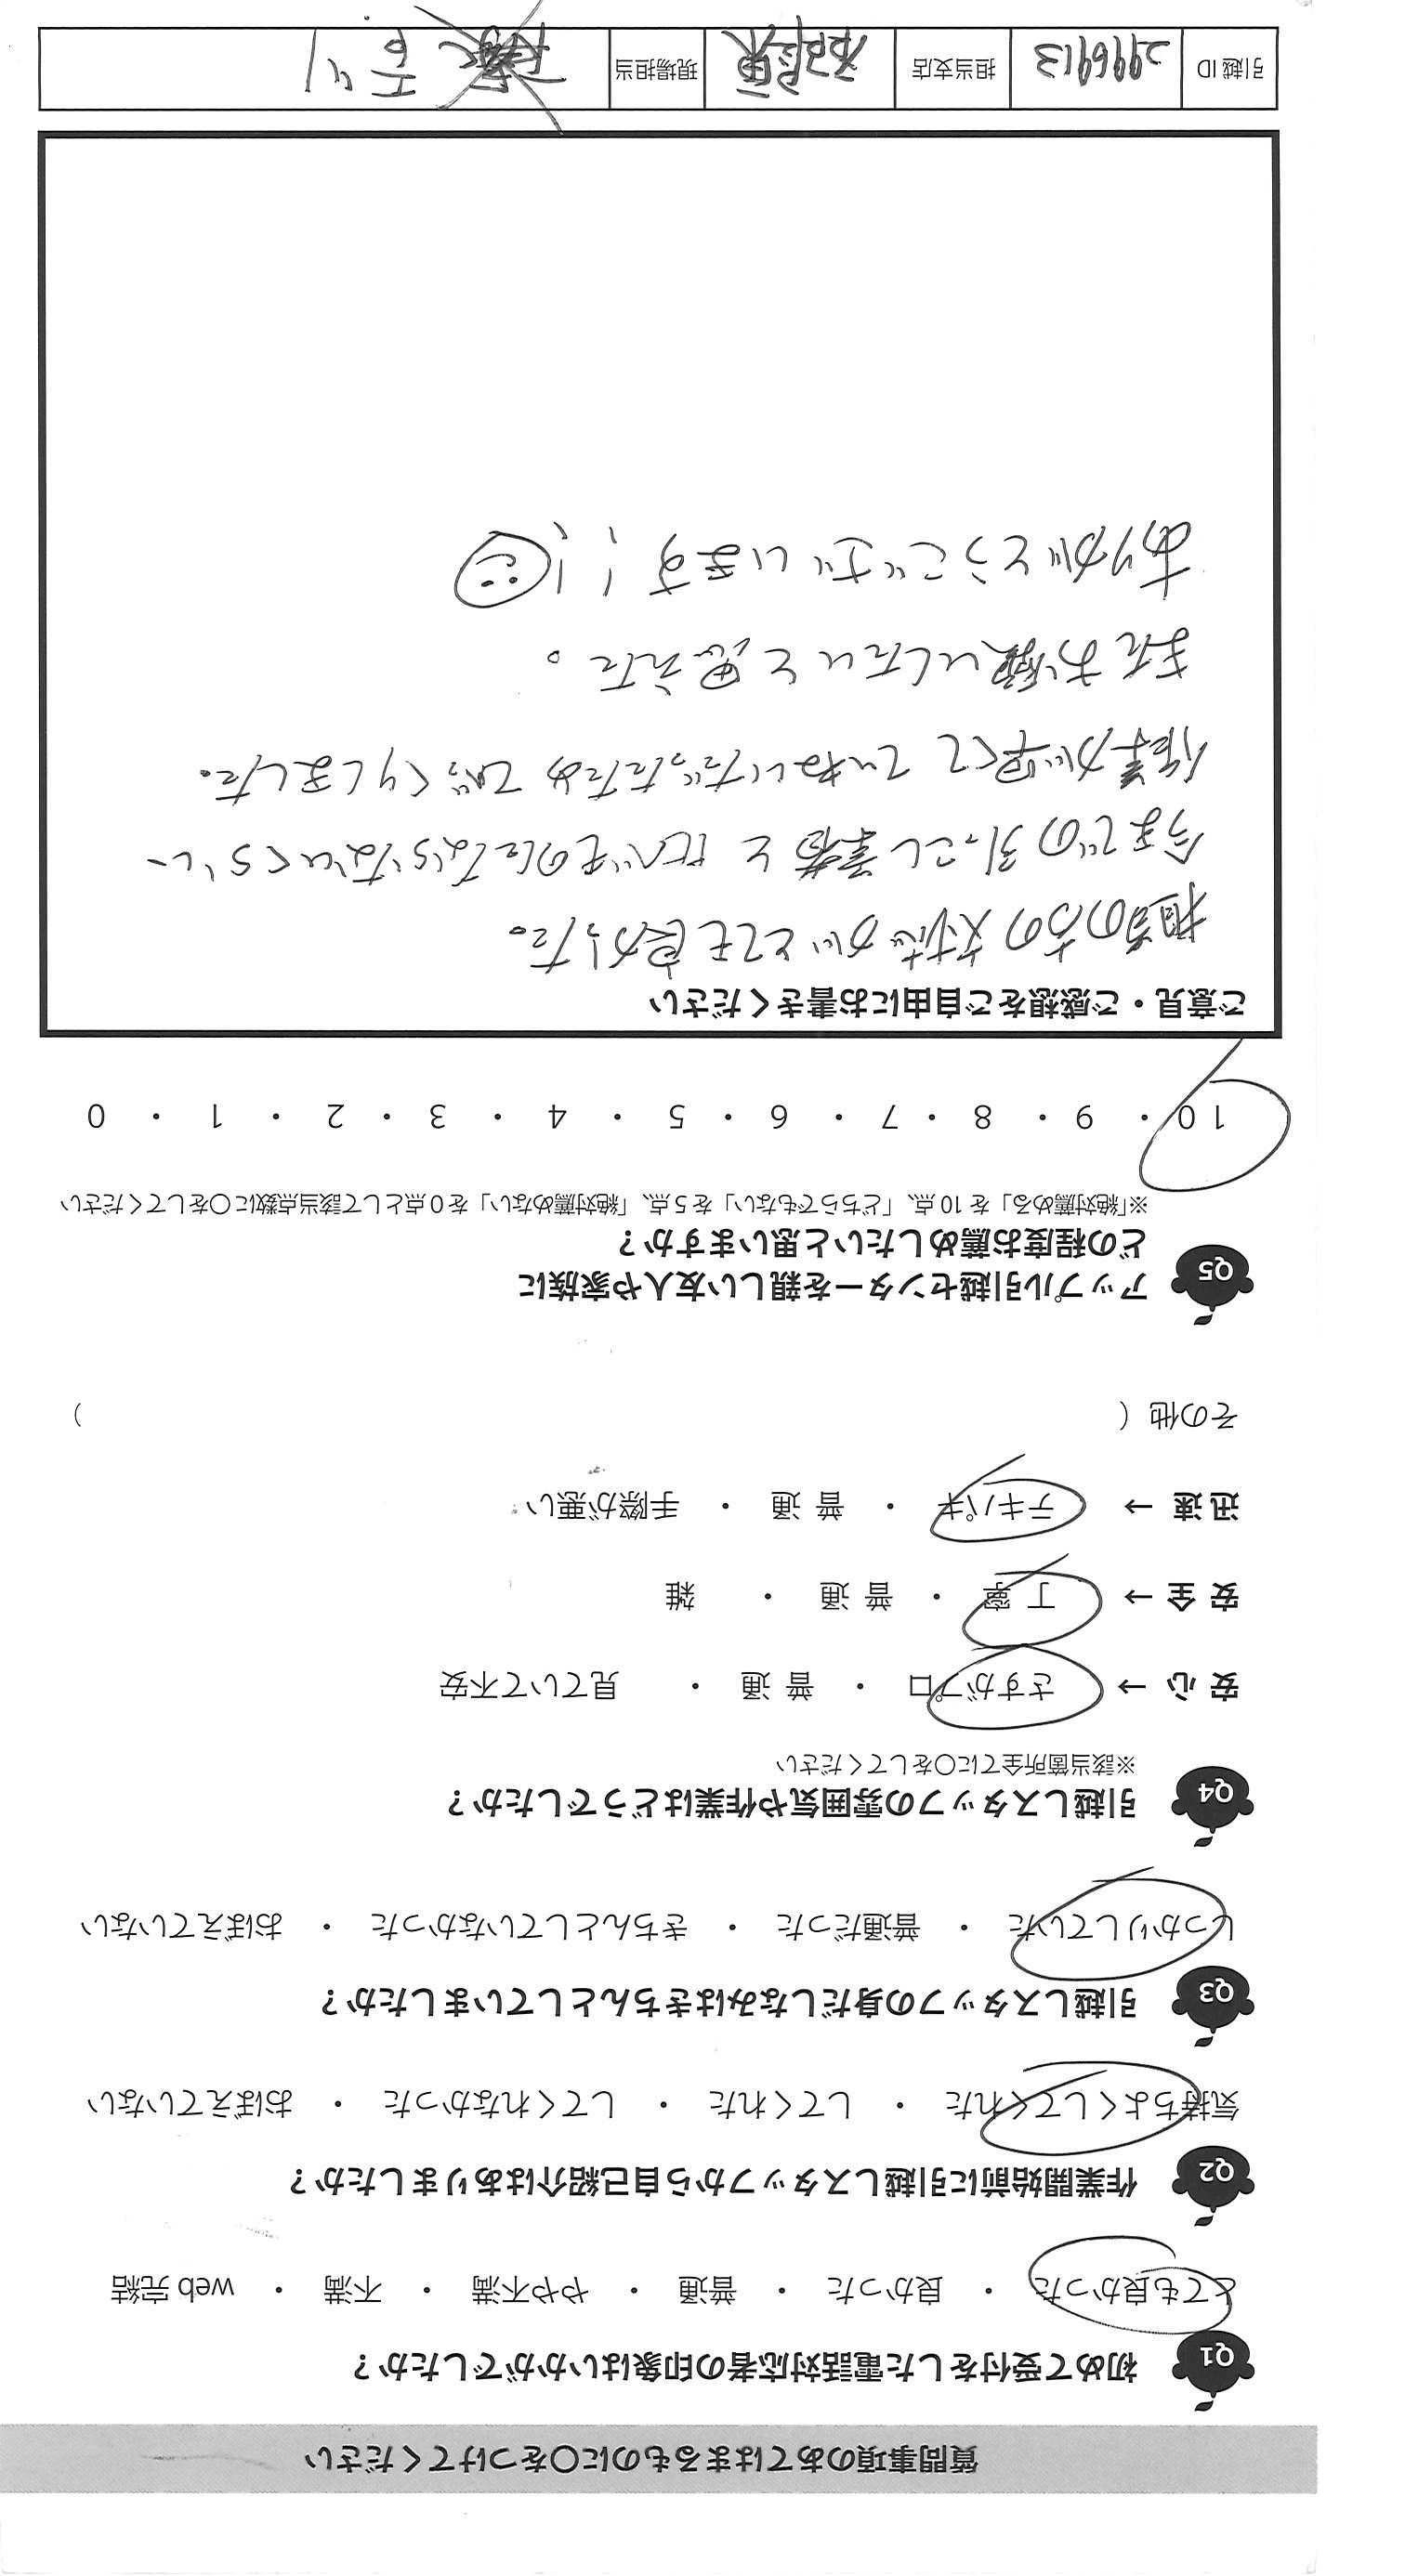 質問事項のあてはまるものに〇をつけてください
Q1 初めて受付をした電話対応者の印象はいかがでしたか？
とても良かった ・ 良かった ・ 普通 ・ やや不満 ・ 不満 ・ web 完結
Q2 作業開始前に引越しスタッフから自己紹介はありましたか？
気持ちよくしてくれた ・ してくれた ・ してくれなかった ・ おぼえていない
Q3 引越しスタッフの身だしなみはきちんとしていましたか？
しっかりしていた ・ 普通だった ・ きちんとしていなかった ・ おぼえていない
Q4 引越しスタッフの雰囲気や作業はどうでしたか？
※該当箇所全てに〇をしてください
安 心 → さすがプロ ・ 普 通 ・ 見ていて不安
安 全 → 丁 寧 ・ 普 通 ・ 雑
迅 速 → テキパキ ・ 普 通 ・ 手際が悪い
その他（ ）
Q5 アップル引越センターを親しい友人や家族に
どの程度お薦めしたいと思いますか？
※「絶対薦める」を 10 点、「どちらでもない」を 5 点、「絶対薦めない」を 0 点として該当点数に〇をしてください
10 ・ 9 ・ 8 ・ 7 ・ 6 ・ 5 ・ 4 ・ 3 ・ 2 ・ 1 ・ 0
ご意見・ご感想をご自由にお書きください
担当の方の対応がとても良かった。
今までの引っこし業者と比べものにならないくらい、
作業が早くてていねいだったためびっくりしました。
またお願いしたいと思えた。
ありがとうございます！！
引越 ID 2996913 担当支店 現場担当